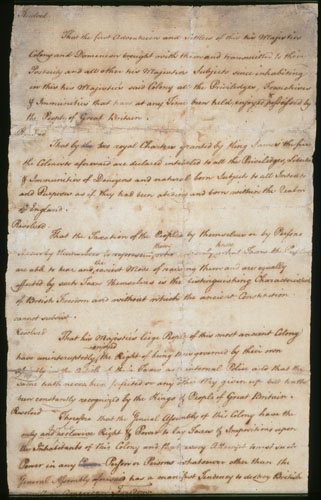 Resolved
That the first Adventurers and Settlers of this his Majesties
Colony and Dominion brought with them and transmitted to their
Posterity and all other his Majesties Subjects since inhabiting
in this his Majesties said Colony all the Priviledges, Franchises
& Immunities that have at any Time been held, enjoyed, & possessed by
the People of Great Britain.
Resolved
That by two royal Charters granted by King James the first
the Colonists aforesaid are declared intituled to all the Priviledges, Liberties
& Immunities of Denizens and natural born Subjects to all Intents
and Purposes as if they had been abiding and born within the Realm
of England.
Resolved
That the Taxation of the People by themselves or by Persons
chosen by themselves to represent them who can only know what Taxes the People
are able to bear and easiest Mode of raising them and are equally
affected by such Taxes Themselves is the distinguishing Characteristic
of British Freedom and without which the ancient Constitution
cannot subsist.
Resolved
That his Majesties liege People of this most ancient Colony
have uninterruptedly enjoyed the Right of being thus governed by their own
Assembly in the Article of their Taxes and internal Police and that the
same hath never been forfeited or any other Way given up but hath
been constantly recognized by the Kings & People of Great Britain.
Resolved
Therefore that the General Assembly of this Colony have the
only and exclusive Right & Power to lay Taxes & Impositions upon
the Inhabitants of this Colony and that every Attempt to vest such
Power in any Person or Persons whatsoever other than the
General Assembly aforesaid has a manifest Tendency to destroy British
Freedom